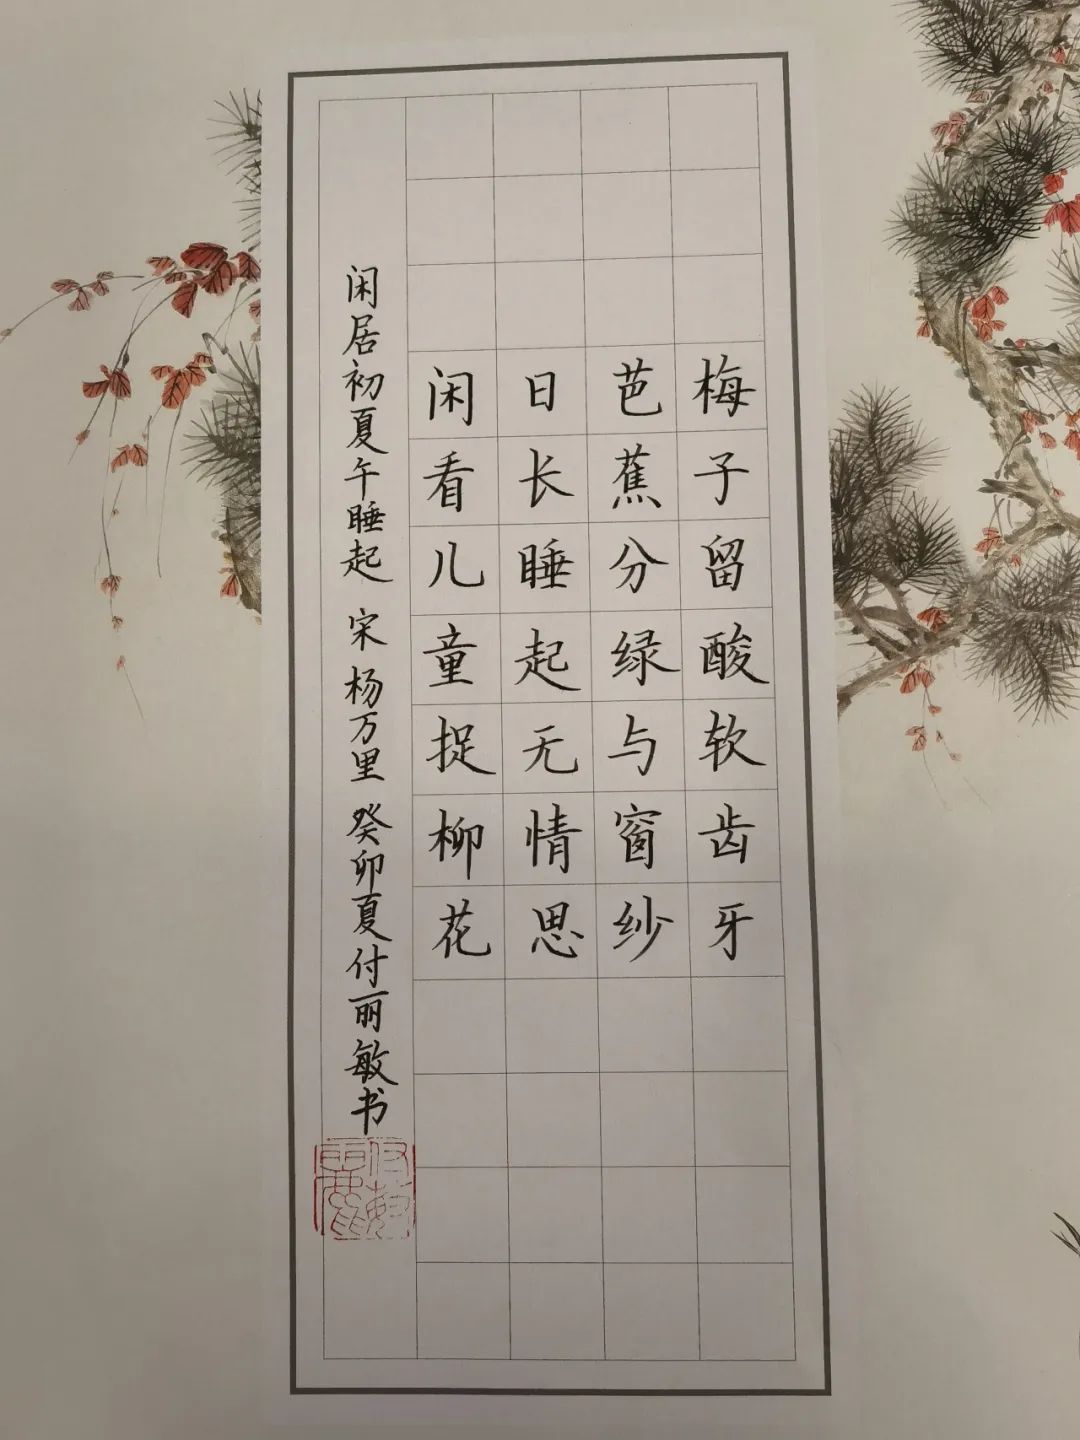 梅子留酸软齿牙
芭蕉分绿与窗纱
日长睡起无情思
闲看儿童捉柳花
闲居初夏午睡起 宋 杨万里 癸卯夏付丽敏书